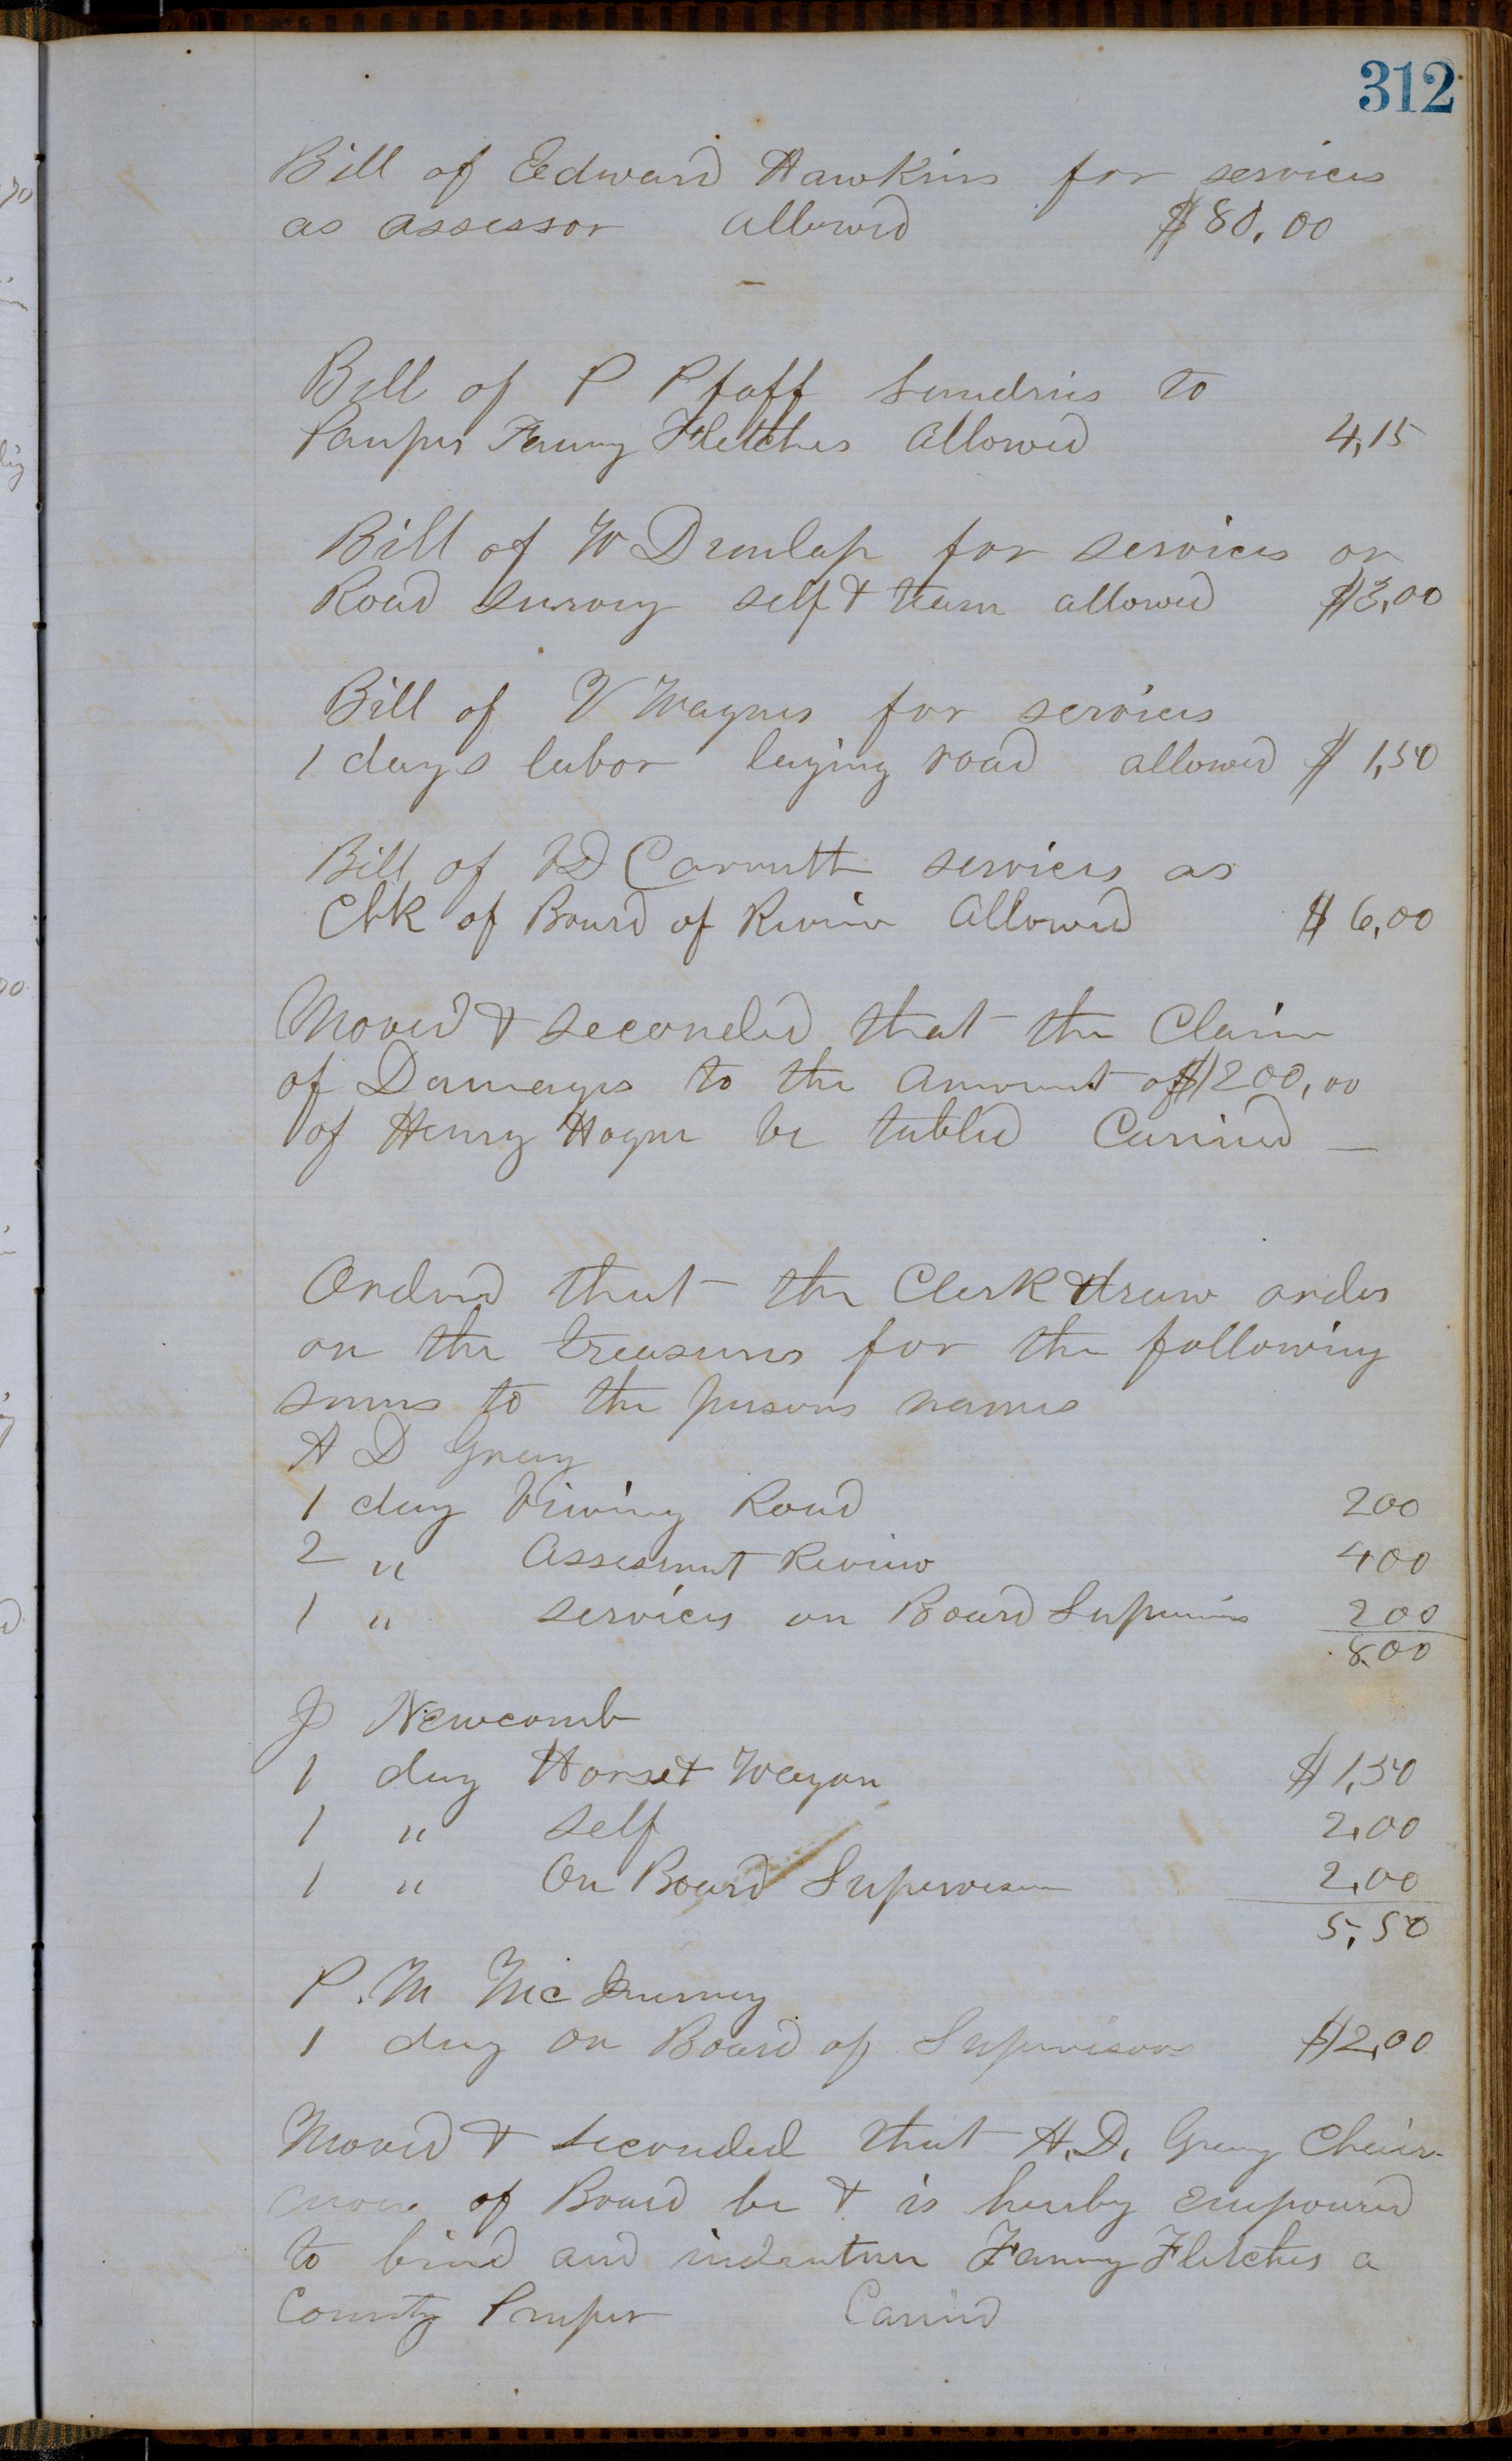 312
Bill of Edward Hawkins for services
as assessor allowed $80.00
Bill of P Pfaff Sundries to
Pauper Fanny Fletcher allowed 4,15
Bill of W Dunlap for services on
Road Survey self & team allowed $3,00
Bill of V Wagner for services
1 days labor laying road allowed $1,50
Bill of Carnutt services as
Clk of Board of Review allowed $6,00
Moved & seconded that the Claim
of Damages to the Amount of $1200,00
of Henry be tabled Carried —
Ordered that the Clerk draw order
on the treasurer for the following
sums to the persons names
A D Gray
1 day Viewing Road 200
2 " Assesment Review 400
1 " services on Board Supervisors 200
8.00
J Newcomb
1 day Horse & Wagon $1,50
1 " self 2,00
1 " On Board Supervisors 2,00
5,50
P. M Mc
1 day on Board of Supervisors $2,00
Moved & seconded that A. D. Gray Chair-
man of Board be & is hereby empowered
to bind and indenture Fanny Fletcher a
County Pauper Carried